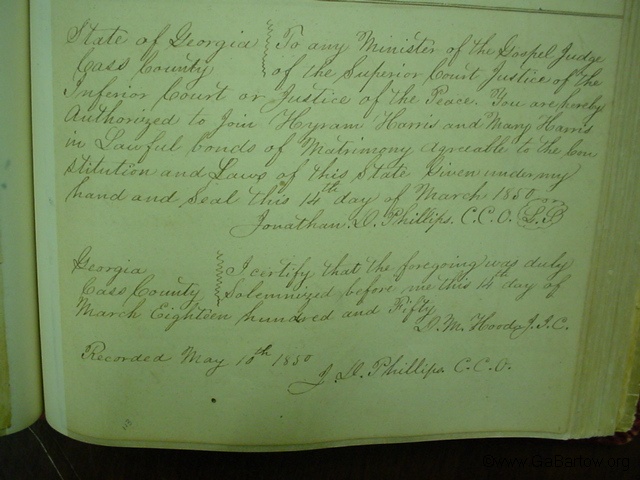 State of Georgia } To any Minister of the Gospel Judge
Cass County } of the Superior Court Justice of the
Inferior Court or Justice of the Peace. You are hereby
Authorized to Join Hyram Harris and Mary Harris
in Lawful bonds of Matrimony agreeable to the Con
stitution and Laws of this State Given under my
hand and Seal this 14th day of March 1850
Jonathan. D. Phillips. C.C.O. L.S
Georgia } I certify that the foregoing was duly
Cass County } Solemnized before me this 14th day of
March Eighteen hundred and Fifty
D. M. Hoods J.I.C.
Recorded May 10th 1850
J. D. Phillips C.C.O.
©www.GaBartow.org